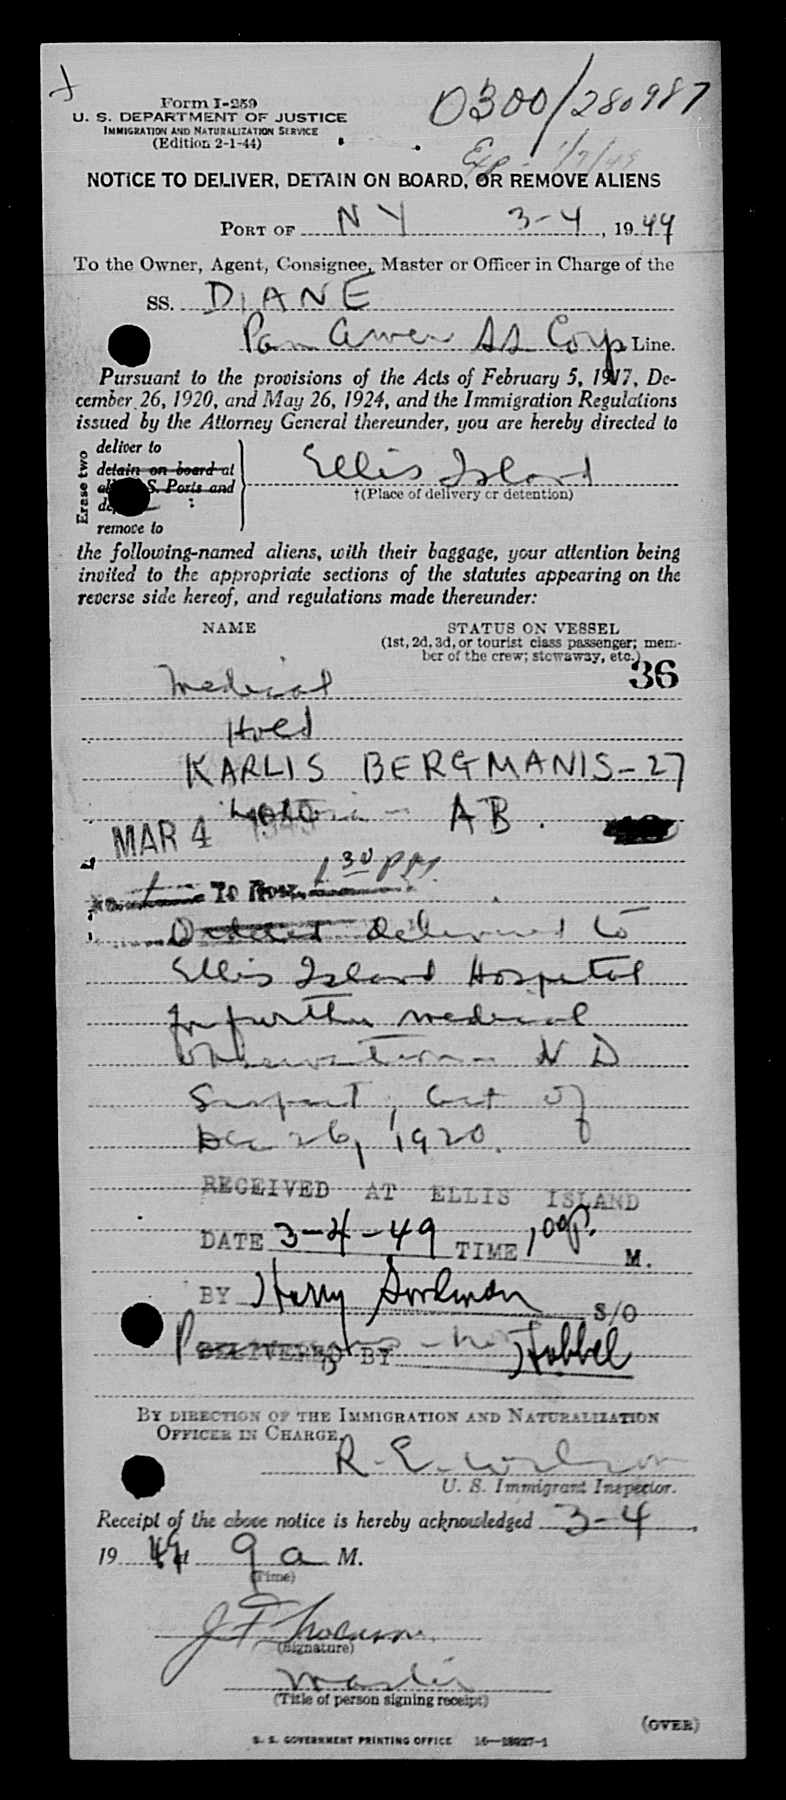 Form I-259
U. S. DEPARTMENT OF JUSTICE
IMMIGRATION AND NATURALIZATION SERVICE
(Edition 2-1-44)
0300/280987
Exp - 1/7/49
NOTICE TO DELIVER, DETAIN ON BOARD, OR REMOVE ALIENS
PORT OF NY 3-4, 1949
To the Owner, Agent, Consignee, Master or Officer in Charge of the
SS. DIANE
Pan Amer SS Corp Line.
Pursuant to the provisions of the Acts of February 5, 1917, De-
cember 26, 1920, and May 26, 1924, and the Immigration Regulations
issued by the Attorney General thereunder, you are hereby directed to
Erase two
deliver to
detain on board at
S. Ports and
remove to
Ellis Island
†(Place of delivery or detention)
the following-named aliens, with their baggage, your attention being
invited to the appropriate sections of the statutes appearing on the
reverse side hereof, and regulations made thereunder:
NAME STATUS ON VESSEL
(1st, 2d, 3d, or tourist class passenger; mem-
ber of the crew; stowaway, etc.)
36
Medical
Hold
KARLIS BERGMANIS - 27
AB.
MAR 4 1949
1 30 PM
Ordered delivered to
Ellis Island Hospital
for further medical
observation - N D
Suspect, Act of
Dec 26, 1920.
RECEIVED AT ELLIS ISLAND
DATE 3-4-49 TIME 1 00 P. M.
BY Harry S/O
DELIVERED BY
BY DIRECTION OF THE IMMIGRATION AND NATURALIZATION
OFFICER IN CHARGE,
R. E. Wilson
U. S. Immigrant Inspector.
Receipt of the above notice is hereby acknowledged 3-4,
1949 at 9 a M.
(Time)
(Signature)
Master
(Title of person signing receipt)
(OVER)
U. S. GOVERNMENT PRINTING OFFICE 16—38927-1